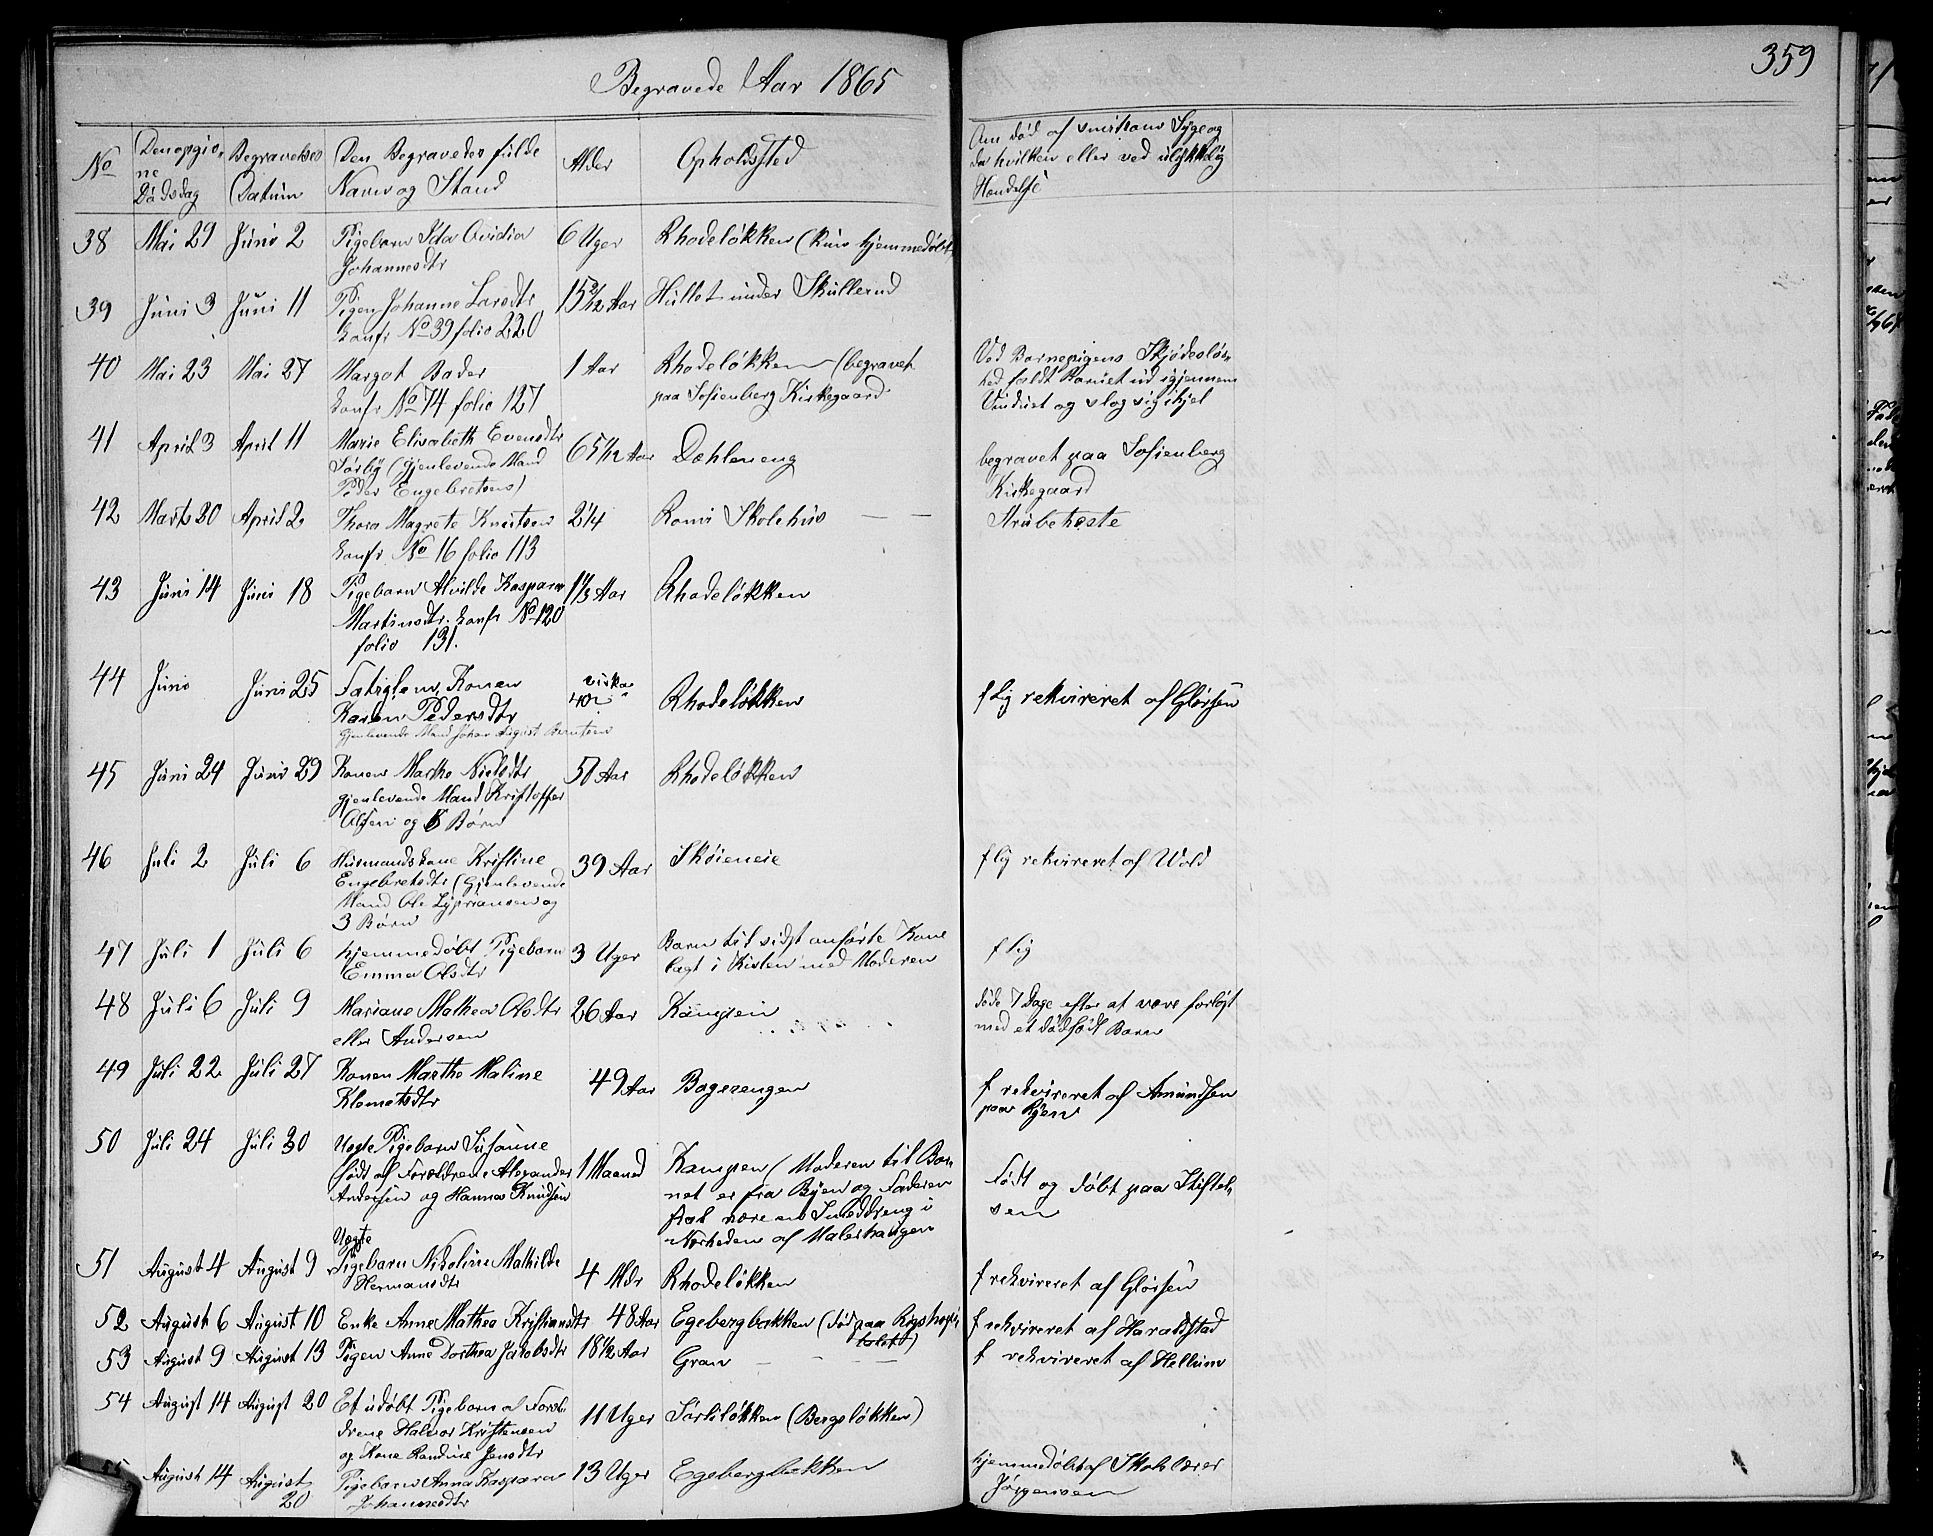 359
Begravede Aar 1865
No
Den opgivne Dödsdag
Begravelses Datum
Den Begravedes fulde Navn og Stand
Alder
Opholdssted
Om död af smitsom Syge og da hvilken eller ved ulykkelig Hændelse
38 Mai 29 Juni 2 Pigebarn Ida Ovidia 6 Uger Rhodeløkken (kun hjemmedøbt
Johannesdtr
39 Juni 3 Juni 11 Pigen Johanne Larsdtr 15 2/12 Aar Hullet under Skullerud
konfr No 39 folio 220
40 Mai 23 Mai 27 Margot Bader 1 Aar Rhodeløkken (begravet Ved Barnepigens Skjødesløs
konfr No 74 folio 127 paa Sofienberg Kirkegaard hed faldt Barnet ud igjennem
Vinduet og slog sig ihjel
41 April 3 April 11 Marie Elisabeth Evensdtr 65/12 Aar Dæhleneng begravet paa Sofienberg
Sørby (gjenlevende Mand Kirkegaard
Peder Engebretsen)
42 Marts 20 April 2 Thora Magrete Knutsen 2 1/4 Roms Skolehus Strubehoste
konfr No 16 folio 113
43 Juni 14 Juni 18 Pigebarn Alvilde Kaspara 1 1/3 Aar Rhodeløkken
Martinsdtr. konfr No 120
folio 131.
44 Juni Juni 25 Fatiglem, Konen cirka 40 Rhodeløkken f Lig rekvireret af Glørsen
Karen Pedersdtr
gjenlevende Mand Johan August Berntsen
45 Juni 24 Juni 29 Konen Marthe Nielsdtr 50 Aar Rhodeløkken
gjenlevende Mand Kristoffer
Olsen og 6 Børn
46 Juli 2 Juli 6 Husmandskone Kristine 39 Aar Skøieneie f lig rekvireret af Wold
Engebretsdtr (Gjenlevende
Mand Ole Zyprianssen og
3 Børn
47 Juli 1 Juli 6 hjemmedøbt Pigebarn 3 Uger Barn til sidst anførte Kone f Lig
Emma Olsdtr lagt i Kisten med Moderen
48 Juli 6 Juli 9 Mariane Mathea Olsdtr 26 Aar Kampen døde 7 Dage efter at være forløst
eller Andersen med et dødfødt Barn
49 Juli 22 Juli 27 Konen Marthe Maline 49 Aar Bagerengen f rekvireret af Amundsen
Klemetsdtr paa Ryen
50 Juli 24 Juli 30 Uægte Pigebarn Susanne 1 Maaned Kampen (Moderen til Bar
født af Forældrene Alexander net er fra Byen og Faderen Født og døbt paa Stiftel
Andersen og Hanna Knudsen skal være en Smeddreng i sen
Nærheden af Malerhaugen
51 August 4 August 9 Uægte Pigebarn Nikoline Mathilde 4 Mdr Rhodeløkken f rekvireret af Glørsen
Hermansdtr
52 August 6 August 10 Enke Anne Mathea Kristiansdtr 48 Aar Egebergbakken (død paa Rigshospi f rekvireret af Haraldstad
talet)
53 August 9 August 13 Pigen Anne Dorthea Jakobsdtr 18 1/2 Aar Gran f rekvireret af Hellum
54 August 14 August 20 Et udøbt Pigebarn af Foræl 11 Uger Sørliløkken (Bergsløkken)
drene Halvor Kristensen
og Kone Randine Jensdtr
August 14 August 20 Pigebarn Anna Kaspara 13 Uger Egebergbakken hjemmedøbt af Skolelærer
Johannesdtr Jørgensen